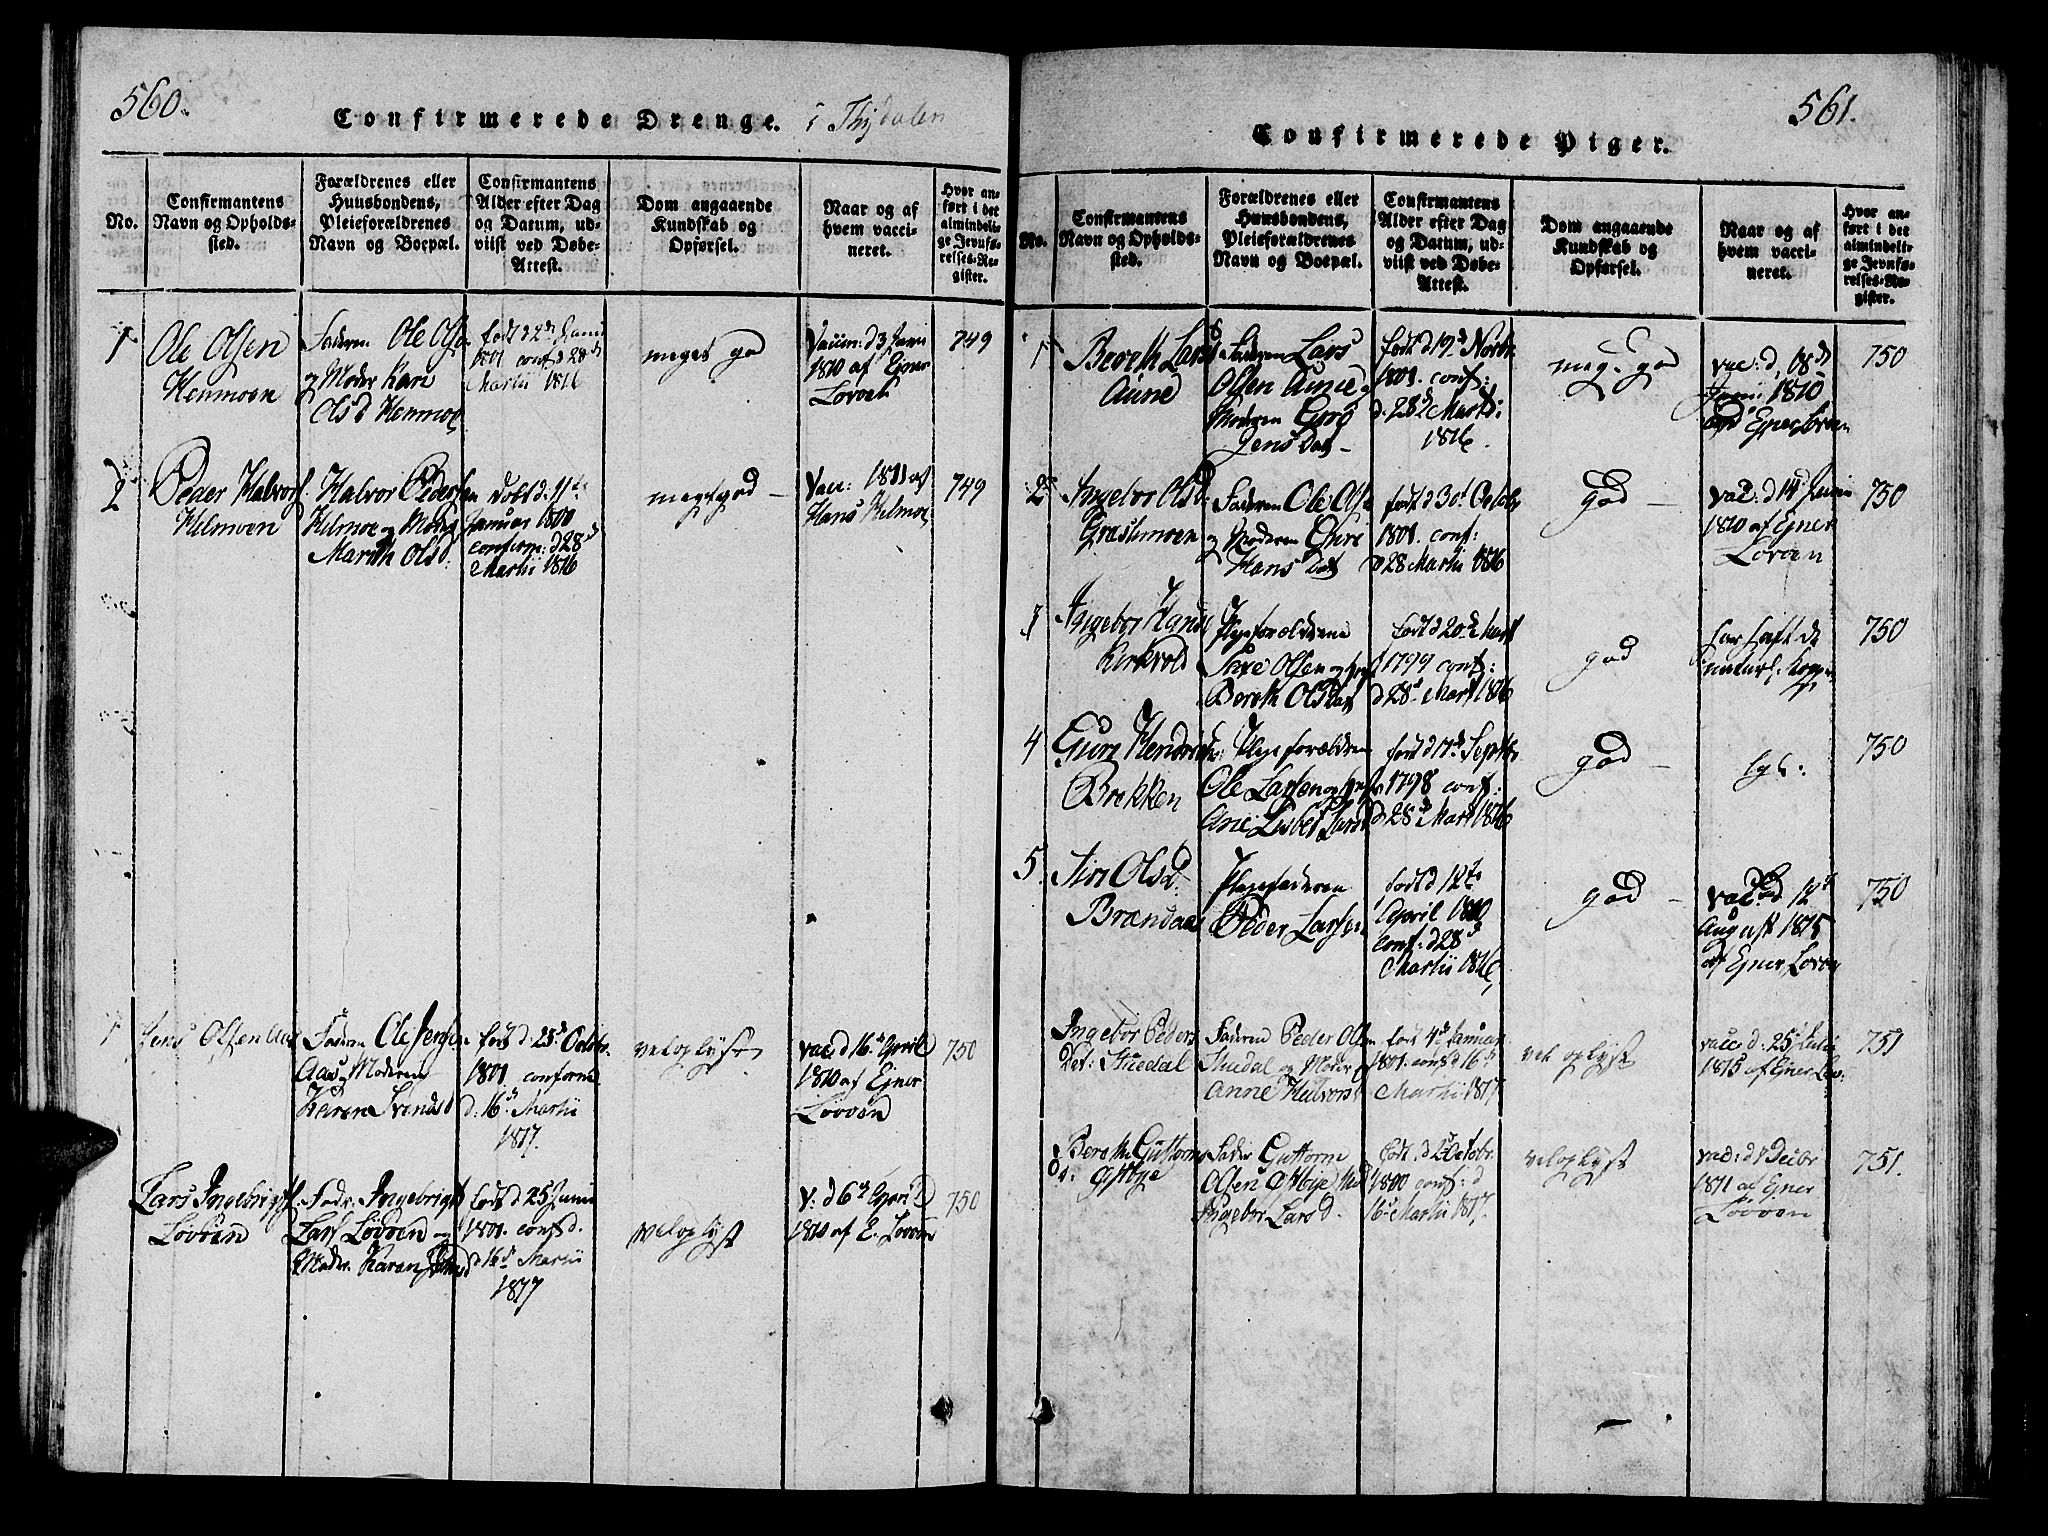 560.
Confirmerede Drenge. i Thydalen
No.
Confirmantens
Navn og Opholds-
sted.
Forældrenes eller
Huusbondens,
Pleieforældrenes
Navn og Boepæl.
Confirmantens
Alder efter Dag
og Datum, ud-
viist ved Døbe-
Attest.
Dom angaaende
Kundskab og
Opførsel.
Naar og af
hvem vacci-
neret.
Hvor an-
ført i det
almindeli-
ge Jevnfø-
relses-Re-
gister.
1
Ole Olsen
Henmoen
Faderen Ole Olse
og Moder Kari
Olsd Henmoe
født d 2d Janu
1801 conf d 28d
Martii 1816
meget god
Vaccin: d 3 Juni
1810 af Ejner
Løvøen
749
2
Peder Halvors:
Helmoen
Halvor Pedersen
Helmoe og Moder
Marith Olsd:
født d: 11te
Januar 1800
confirm: d 28d
Martii 1816
meget god –
Vacc: 1811 af
Hans Helmoe
749
1
Jens Olsen Aas
Faderen Ole Jensen
Aas og Moderen
Karen Svendsd
født d: 25d Octobr
1801. conform
d: 16d Martii
1817.
vel oplyst
vacc d 16d April
1810 af Ejner
Løvøen
750
Lars Ingebrigts
Løvøen
Fader Ingebrigt
Lars Løvøen og
Moder Karen
født d 25 Junii
1801. conf d.
d 16d Martii
1817
vel oplyst
V: d 6te April
1810 af E. Løvøen
750
561.
Confirmerede Piger.
No.
Confirmantens
Navn og Opholds-
sted.
Forældrenes eller
Huusbondens,
Pleieforældrenes
Navn og Boepæl.
Confirmantens
Alder efter Dag
og Datum, ud-
viist ved Døbe-
Attest.
Dom angaaende
Kundskab og
Opførsel.
Naar og af
hvem vacci-
neret.
Hvor an-
ført i det
almindeli-
ge Jevnfø-
relses-Re-
gister.
1
Bereth Larsd
Aune
Faderen Lars
Olsen Aune og
Moderen Gurø
Jens Dat –
født d 19d Novbr
1801. conf:
d. 28d Martii
1816.
meg. god
vac: d, 18d
Junii 1810
af Ejner Løvøen
750
2
Ingebor Olsd:
Græslimoen
Faderen Ole Olse
og Moderen Guro
Hans Dat
født d 30d Octob
1801. conf:
d 28 Martii 1816
god –
vac: d 14d Junii
1810 af Ejner
Løvøen
750
3
Ingebor Hansd
Kirkvold
Plejeforældrene
Olsen og
Bereth Olsdat
født d 20de Mart
1799 conf:
d 28d Mart 1816
god
har haft de
naturl: Kopper
750
4
Guru Hendrichs:
Brekken
Plejeforældren
Ole Larsen og
Ane Lisbet Larsd
født d 17d Septbr
1798 conf:
d 28d Mart 1816
god –
lgl:
750
5
Siri Olsd
Brændaas
Plejefaderen
Peder Larsen
født d 12te
April 1800
conf: d 28d
Martii 1816,
god –
vac. d 12d
August 1815
af Ejner Løvøen
750
Ingebor Peders
Dat: Stuedal
Faderen Peder Olsen
Stuedal og Moder
Anne Halvorsd
født 4d Januar
1801. conf d 16d
Martii 1817
vel oplyst
vacc d: 25d Julii
1815 af Ejner Løv:
751
Bereth Guttorms
Dd: Østbye
Fader Guttorm
Olsen Østbye Mod
Ingebor Larsd.
født. d 2d Octobr.
1800 conf: d
16d Martii 1817.
vel oplyst
vac: d 1 Decbr
1811 af Ejner
Løvøen
751.